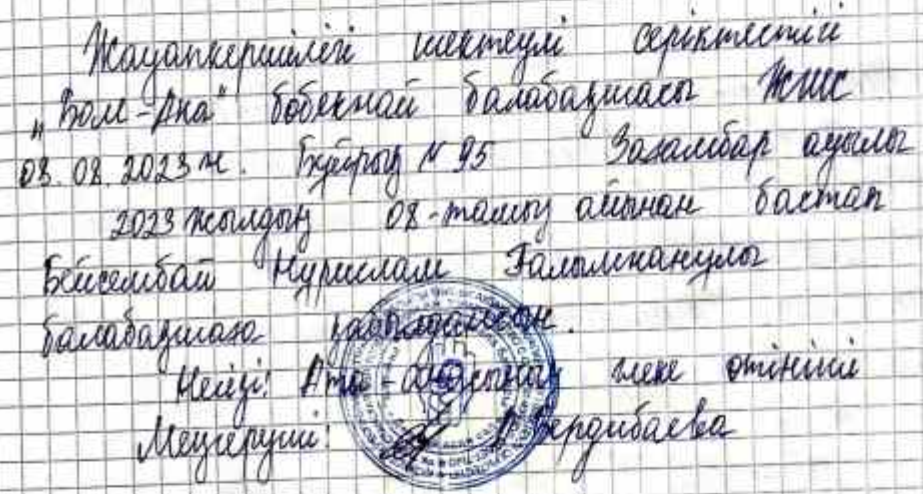 Жауапкершілігі шектеулі серіктестігі
„Бал-Ана" бөбекжай балабақшасы ЖШС
08.08.2023 ж. Бұйрық № 95 ауылы
2023 жылдың 08-тамыз айынан бастап
Бейсембай Нурислам Ғалымжанұлы
балабақшаға қабылдансын.
Негізі: Ата-анасының жеке өтініші
Меңгеруші: Бердибаева